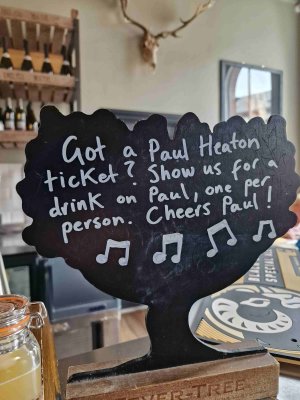 Got a Paul Heaton
ticket? Show us for a
drink on Paul, one per
person. Cheers Paul!
FEVER-TREE